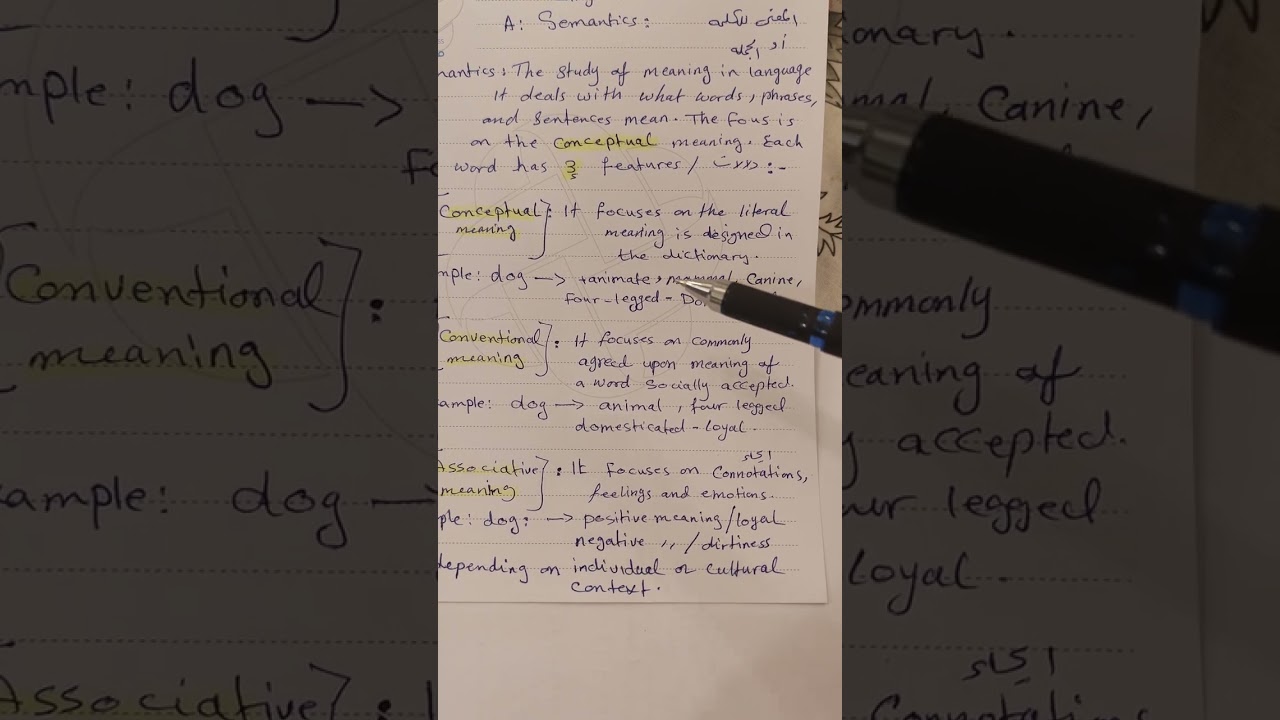 A: Semantics: المعنى للكلمة
أو الجملة
mantics: The study of meaning in language
It deals with what words, phrases,
and sentences mean. The fous is
on the conceptual meaning. Each
word has 3 features / :-
Conceptual meaning]: It focuses on the literal
meaning is designed in
the dictionary.
mple: dog → +animate, mammal, Canine,
four-legged - Do
Conventional meaning]: It focuses on commonly
agreed upon meaning of
a word socially accepted.
ample: dog → animal, four legged
domesticated - loyal.
إيحاء
Associative meaning]: It focuses on Connotations,
feelings and emotions.
ple: dog: → positive meaning/loyal
negative ,, / dirtiness
depending on individual or cultural
context.